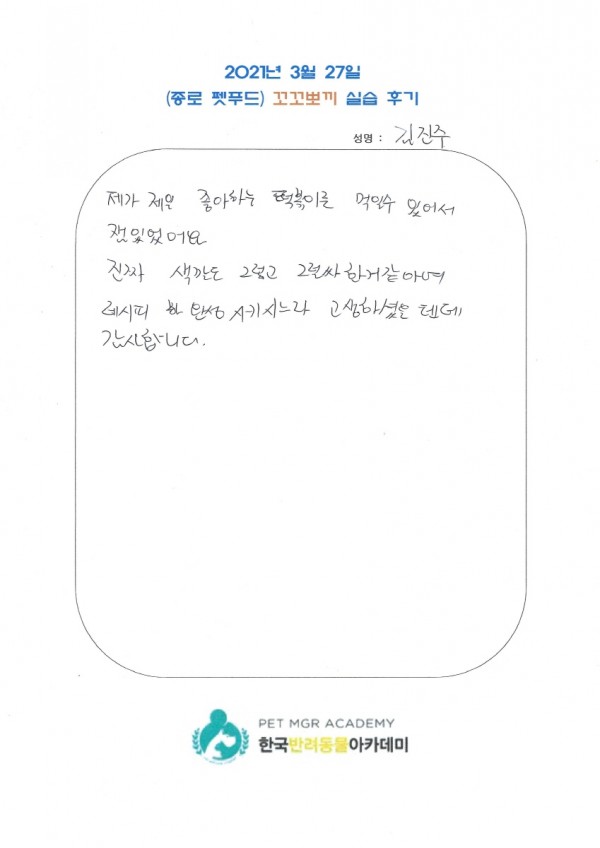 2021년 3월 27일
(종로 펫푸드) 꼬꼬뽀끼 실습 후기
성명 : 김진주
제가 제일 좋아하는 떡볶이를 먹일수 있어서
잼있었어요
진짜 색깔도 그렇고 그럴싸한거같아여
레시피 완성시키시느라 고생하셨을 텐데
감사합니다.
PET MGR ACADEMY
한국반려동물아카데미